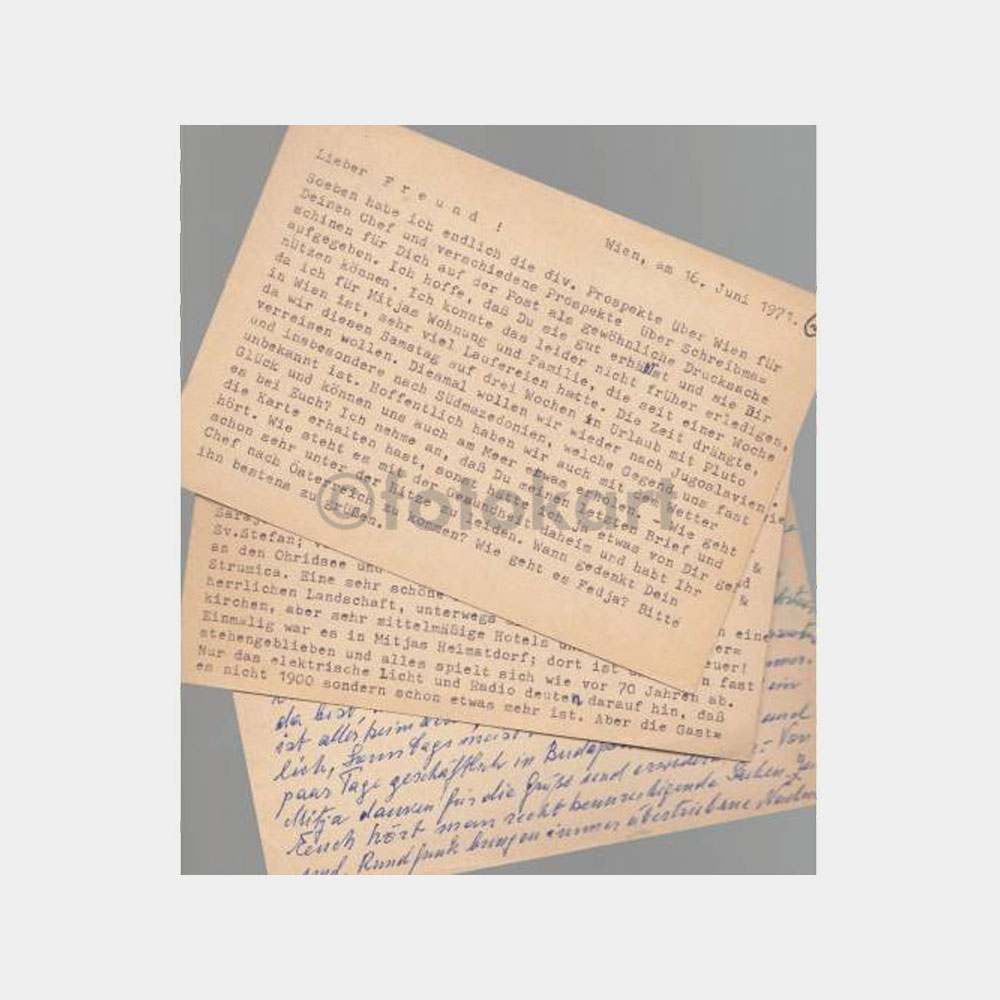 Wien, am 16. Juni 1971.
Lieber Freund!
Soeben habe ich endlich die div. Prospekte über Wien für
Deinen Chef und verschiedene Prospekte über Schreibma=
schinen für Dich auf der Post als gewöhnliche Drucksache
aufgegeben. Ich hoffe, daß Du sie gut erhältst und sie Dir
nützen können. Ich konnte das leider nicht früher erledigen,
da ich für Mitjas Wohnung und Familie, die seit einer Woche
in Wien ist, sehr viel Laufereien hatte. Die Zeit drängte,
da wir diesen Samstag auf drei Wochen in Urlaub mit Pluto
verreisen wollen. Diesmal wollen wir wieder nach Jugoslavien
und insbesondere nach Südmazedonien, welche Gegend uns fast
unbekannt ist. Hoffentlich haben wir auch mit dem Wetter
Glück und können uns auch am Meer etwas erholen. Wie geht
es bei Euch? Ich nehme an, daß Du meinen letzten Brief und
die Karte erhalten hast, sonst hätte ich ja etwas von Dir ge=
hört. Wie steht es mit der Gesundheit daheim und habt Ihr
schon sehr unter der Hitze zu leiden. Wann gedenkt Dein
Chef nach Österreich zu kommen? Wie geht es Fedja? Bitte
ihn bestens zu grüßen.
©fotokart
Saraj
Sv.Stefan;
as den Ohridsee und
Strumica. Eine sehr schöne
herrlichen Landschaft, unterwegs
kirchen, aber sehr mittelmäßige Hotels
Einmalig war es in Mitjas Heimatdorf; dort ist fast
stehengeblieben und alles spielt sich wie vor 70 Jahren ab.
Nur das elektrische Licht und Radio deuten darauf hin, daß
es nicht 1900 sondern schon etwas mehr ist. Aber die Gast=
da bist,
ist alles beim
lich, Samstags meist und
paar Tage geschäftlich in Budapest Von
Mitja danken für die Grüße und erwidern
Euch hört man recht beunruhigende Sachen,
und Rundfunk bringen immer übertriebene